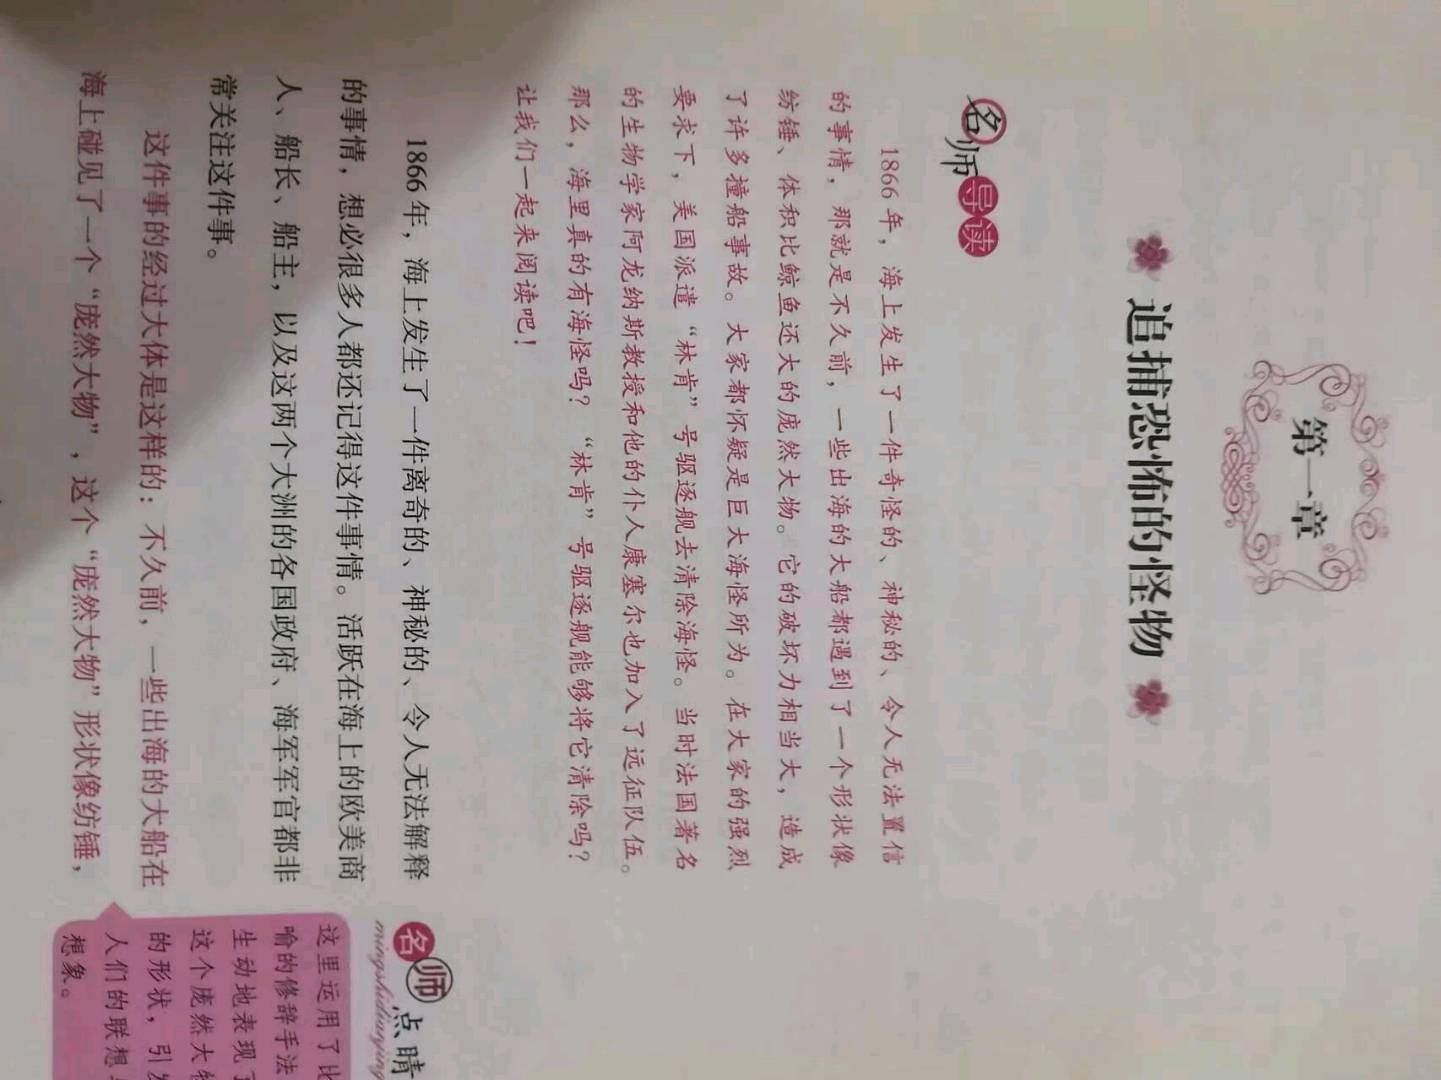 第一章
追捕恐怖的怪物
名师导读
1866年，海上发生了一件奇怪的、神秘的、令人无法置信
的事情，那就是不久前，一些出海的大船都遇到了一个形状像
纺锤、体积比鲸鱼还大的庞然大物。它的破坏力相当大，造成
了许多撞船事故。大家都怀疑是巨大海怪所为。在大家的强烈
要求下，美国派遣“林肯”号驱逐舰去清除海怪。当时法国著名
的生物学家阿龙纳斯教授和他的仆人康塞尔也加入了远征队伍。
那么，海里真的有海怪吗？“林肯”号驱逐舰能够将它清除吗？
让我们一起来阅读吧！
1866年，海上发生了一件离奇的、神秘的、令人无法解释
的事情，想必很多人都还记得这件事情。活跃在海上的欧美商
人、船长、船主，以及这两个大洲的各国政府、海军军官都非
常关注这件事。
这件事的经过大体是这样的：不久前，一些出海的大船在
海上碰见了一个“庞然大物”，这个“庞然大物”形状像纺锤，
名师点睛
mingshidianjing
这里运用了比
喻的修辞手法
生动地表现了
这个庞然大物
的形状，引发
人们的联想
想象。